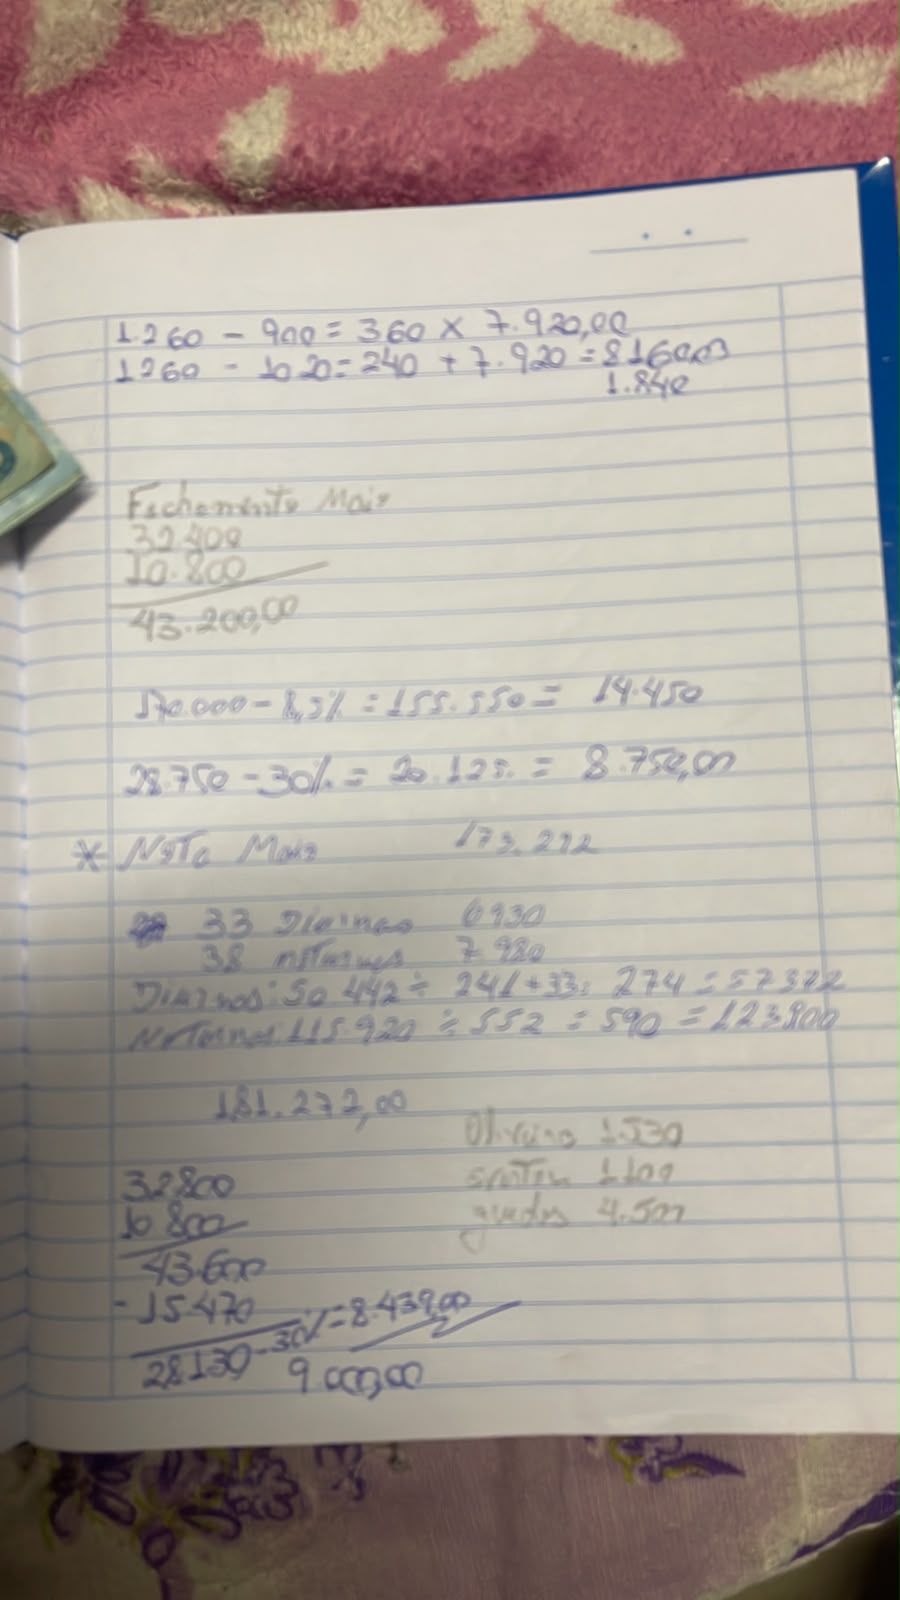 1.260 - 900 = 360 x 7.920,00
1260 - 1020 = 240 + 7.920 = 8160,00
1.840
Fechamento Maio
32.400
10.800
43.200,00
170.000 - 8,5% = 155.550 = 14.450
28.750 - 30% = 20.125 = 8.750,00
* Nota Maio 173.292
33 Diurnas 6930
38 noturnas 7980
Diurnos: 50 442 ÷ 241 + 33 = 274 = 57372
Noturnos: 115 920 ÷ 552 = 590 = 123900
181.272,00
1.530
32800
1100
10 800
guedes 4.500
43.600
- 15.470
28130 - 30% = 8.439,00
9.000,00